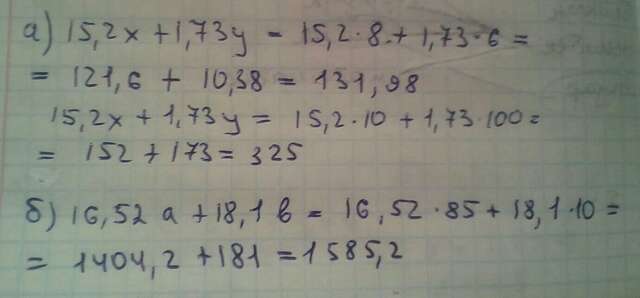 а) 15,2x + 1,73y = 15,2·8 + 1,73·6 =
= 121,6 + 10,38 = 131,98
15,2x + 1,73y = 15,2·10 + 1,73·100 =
= 152 + 173 = 325
б) 16,52a + 18,1b = 16,52·85 + 18,1·10 =
= 1404,2 + 181 = 1585,2